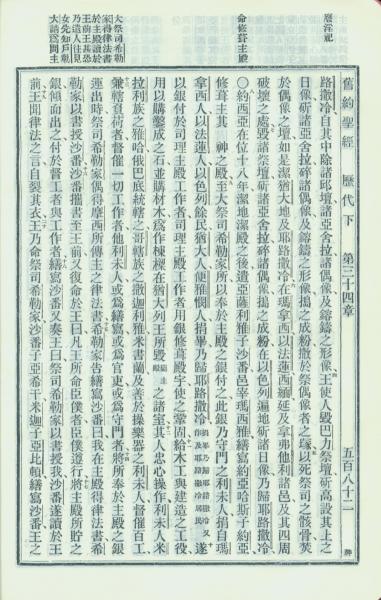 廢淫祀
命修葺主殿
大祭司希勒
家得律法書
於主殿讀於
王前王甚恐
乃遣人往見
女先知戶勒
大請爲問主
舊約聖經 歷代下 第三十四章 五百八十二
路撒冷自其中除諸邱壇諸亞舍拉諸偶像及鎔鑄之形像王使人毀巴力祭壇斫高設其上之
日像斫諸亞舍拉碎諸偶像及鎔鑄之形像搗之成粉撒於祭偶像者之塚以死祭司之骸骨焚
於偶像之壇如是潔猶大地及耶路撒冷在瑪拿西以法蓮西緬延及拿弗他利諸邑及其四周
破壞之處毀諸祭壇斫諸亞舍拉碎諸偶像搗之成粉在以色列遍地斫諸日像乃歸耶路撒冷
○約西亞在位十八年潔地潔殿之後遣亞薩利雅子沙番邑宰瑪西雅繕寫約亞哈斯子約亞
修葺主其神之殿至大祭司希勒家所以奉於主殿之銀付之此銀乃守門之利未人捐自瑪
拿西人以法蓮人以色列餘民猶大人便雅憫人捐畢乃歸耶路撒冷遂
以銀付於司理主殿工作者司理主殿工作者用銀修葺殿宇使之鞏固給木工與建造之工役
用以購鑿成之石並購材木爲作棟樑在猶大列王所毀之諸室其人忠心操作利未人米
拉利族之雅哈俄巴底統轄之哥轄族之撒迦利雅米書蘭及善於操樂器之利未人督催百工
兼轄負荷者督催一切工作者他利未人或爲繕寫或爲官吏或爲守門者將所奉於主殿之銀
運出時祭司希勒家偶得摩西所傳主之律法書希勒家告繕寫沙番曰我在主殿得律法書希
勒家以書授沙番沙番攜書至王前又復命於王曰凡王所命臣僕者臣僕遵行將主殿所貯之
銀傾而出之付於督工者與工作者繕寫沙番又奏王曰祭司希勒家以書授我沙番遂讀於王
前王聞律法之言自裂其衣王乃命祭司希勒家沙番子亞希干米迦子亞比頓繕寫沙番王之